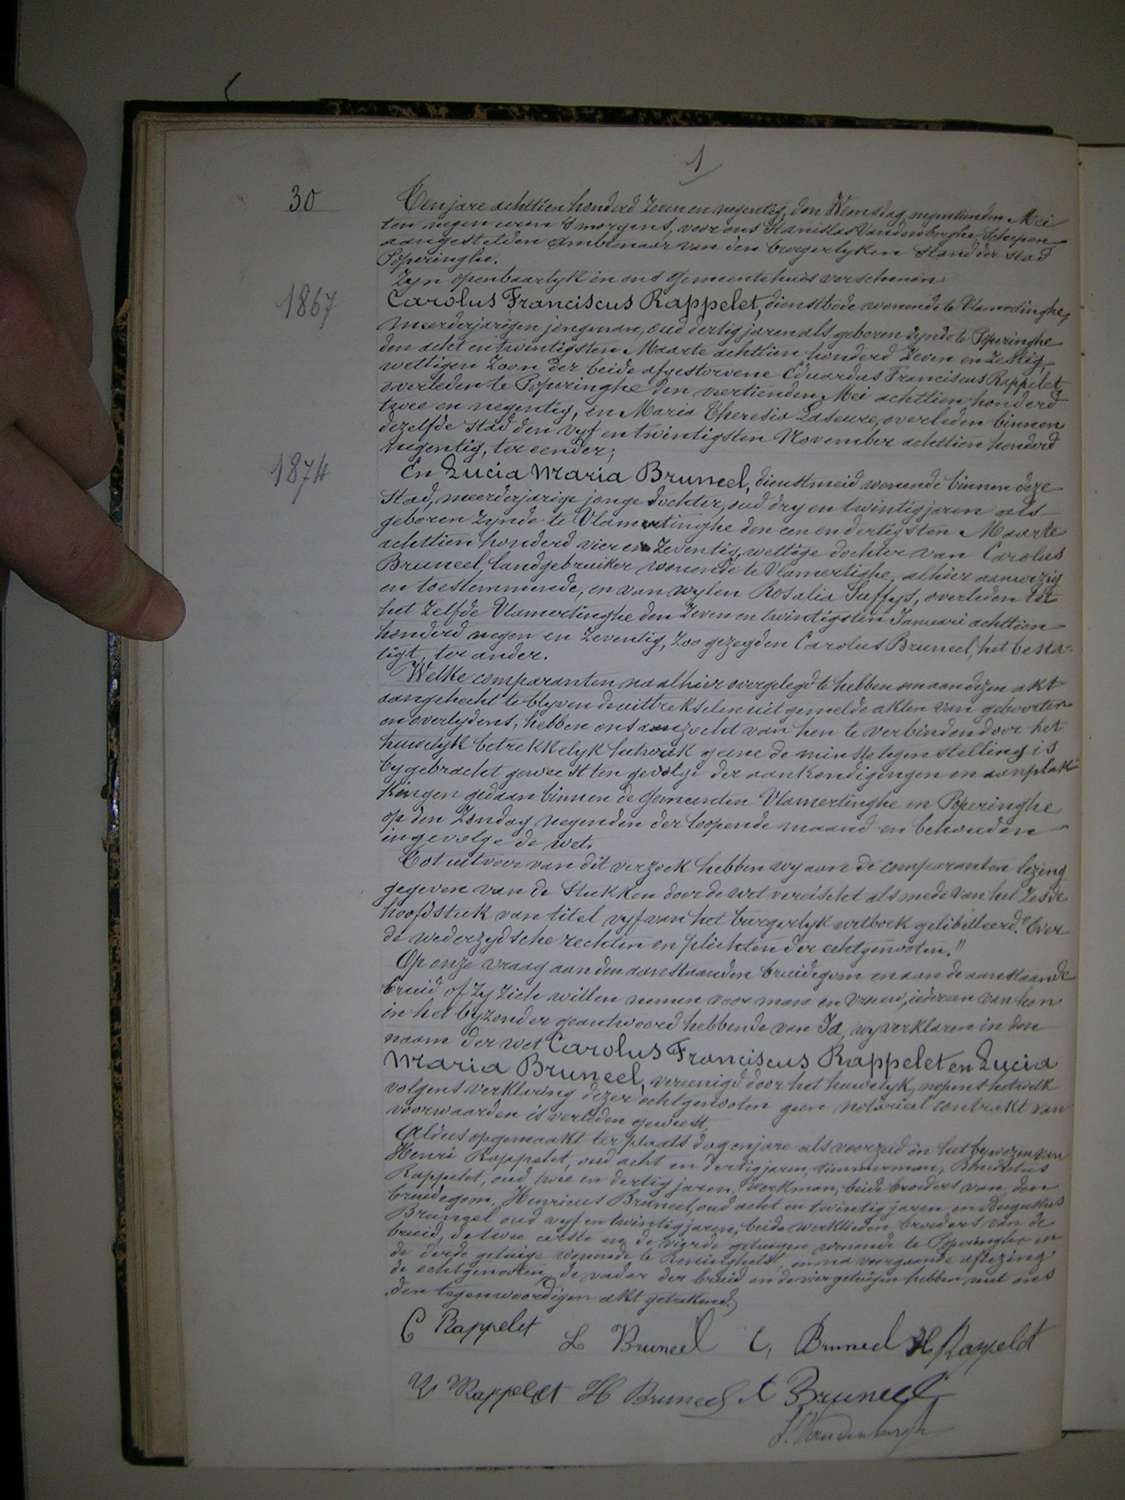 1
30
Ten jare achttien honderd Zeven en negentig, den Woensdag negentienden Mei
ten negen uren 's morgens, voor ons Stanislas Vandenberghe, Schepen
aangestelden Ambtenaar van den burgerlyken Stand der Stad
Poperinghe.
Zyn openbaarlyk in ons Gemeentehuis verschenen
1867
Carolus Franciscus Rappelet, dienstbode wonende te Vlamertinghe,
meerderjarigen jongman, oud dertig jaren als geboren zynde te Poperinghe
den acht en twintigsten Maarte achttien honderd Zeven en Zestig,
wettigen Zoon der beide afgestorvene Eduardus Franciscus Rappelet
overleden te Poperinghe den veertienden Mei achttien honderd
twee en negentig, en Maria Theresia Laseure, overleden binnen
dezelfde Stad den vyf en twintigsten November achttien honderd
negentig, ter eender;
1874
En Lucia Maria Bruneel, dienstmeid wonende binnen deze
Stad, meerderjarige jonge dochter, oud dry en twintig jaren als
geboren Zynde te Vlamertinghe den een en dertigsten Maarte
achttien honderd vier en Zeventig, wettige dochter van Carolus
Bruneel, landgebruiker wonende te Vlamertinghe, alhier aanwezig
en toestemmende, en van wylen Rosalia overleden te
het Zelfde Vlamertinghe den Zeven en twintigsten Januari achttien
honderd negen en Zeventig, Zoo gezegden Carolus Bruneel, het besta-
tigt, ter ander.
Welke comparanten, na alhier overgelegd te hebben om aan dezen akt
aangehecht te blyven de uittrekselen uit gemelde akten van geboorten
en overlydens, hebben ons aanzocht van hen te verbinden door het
huwelyk betrekkelyk hetwelk geene de minste tegenstelling is
bygebracht geweest ten gevolge der aankondigingen en aanplak-
kingen gedaan binnen de Gemeenten Vlamertinghe en Poperinghe
op den Zondag negenden der loopende maand en behouden
ingevolge de wet.
Tot uitvoer van dit verzoek hebben wy aan de comparanten lezing
gegeven van de Stukken door de wet vereischt als mede van het Zesde
hoofdstuk van titel vyf van het burgerlyk wetboek gelibelleerd: "Over
de wederzydsche rechten en plichten der echtgenooten."
Op onze vraag aan den aanstaanden bruidegom en aan de aanstaande
bruid of Zy Zich willen nemen voor man en vrouw, iedereen van hen
in het byzonder geantwoord hebbende van Ja, wy verklaren in den
naam der wet Carolus Franciscus Rappelet en Lucia
Maria Bruneel, vereenigd door het huwelyk, nopens hetwelk
volgens verklaring dezer echtgenooten geen notarieel contrakt van
voorwaarden is verleden geweest.
Aldus opgemaakt ter plaats dag en jare als voorzeid in het bywezen van
Henri Rappelet, oud acht en dertig jaren, timmerman, Benedictus
Rappelet, oud twee en dertig jaren, werkman, beide broeders van den
bruidegom, Henricus Bruneel, oud acht en twintig jaren en Augustus
Bruneel oud vyf en twintig jaren, beide werklieden broeders van de
bruid, de twee eerste en de vierde getuigen wonende te Poperinghe en
de derde getuige wonende te Reninghelst en na voorgaande aflezing
de echtgenooten, de vader der bruid en de vier getuigen hebben met ons
den tegenwoordigen akt geteekend.
C Rappelet L Bruneel C, Bruneel H Rappelet
Rappelet H Bruneel A Bruneel
S. Vandenberghe